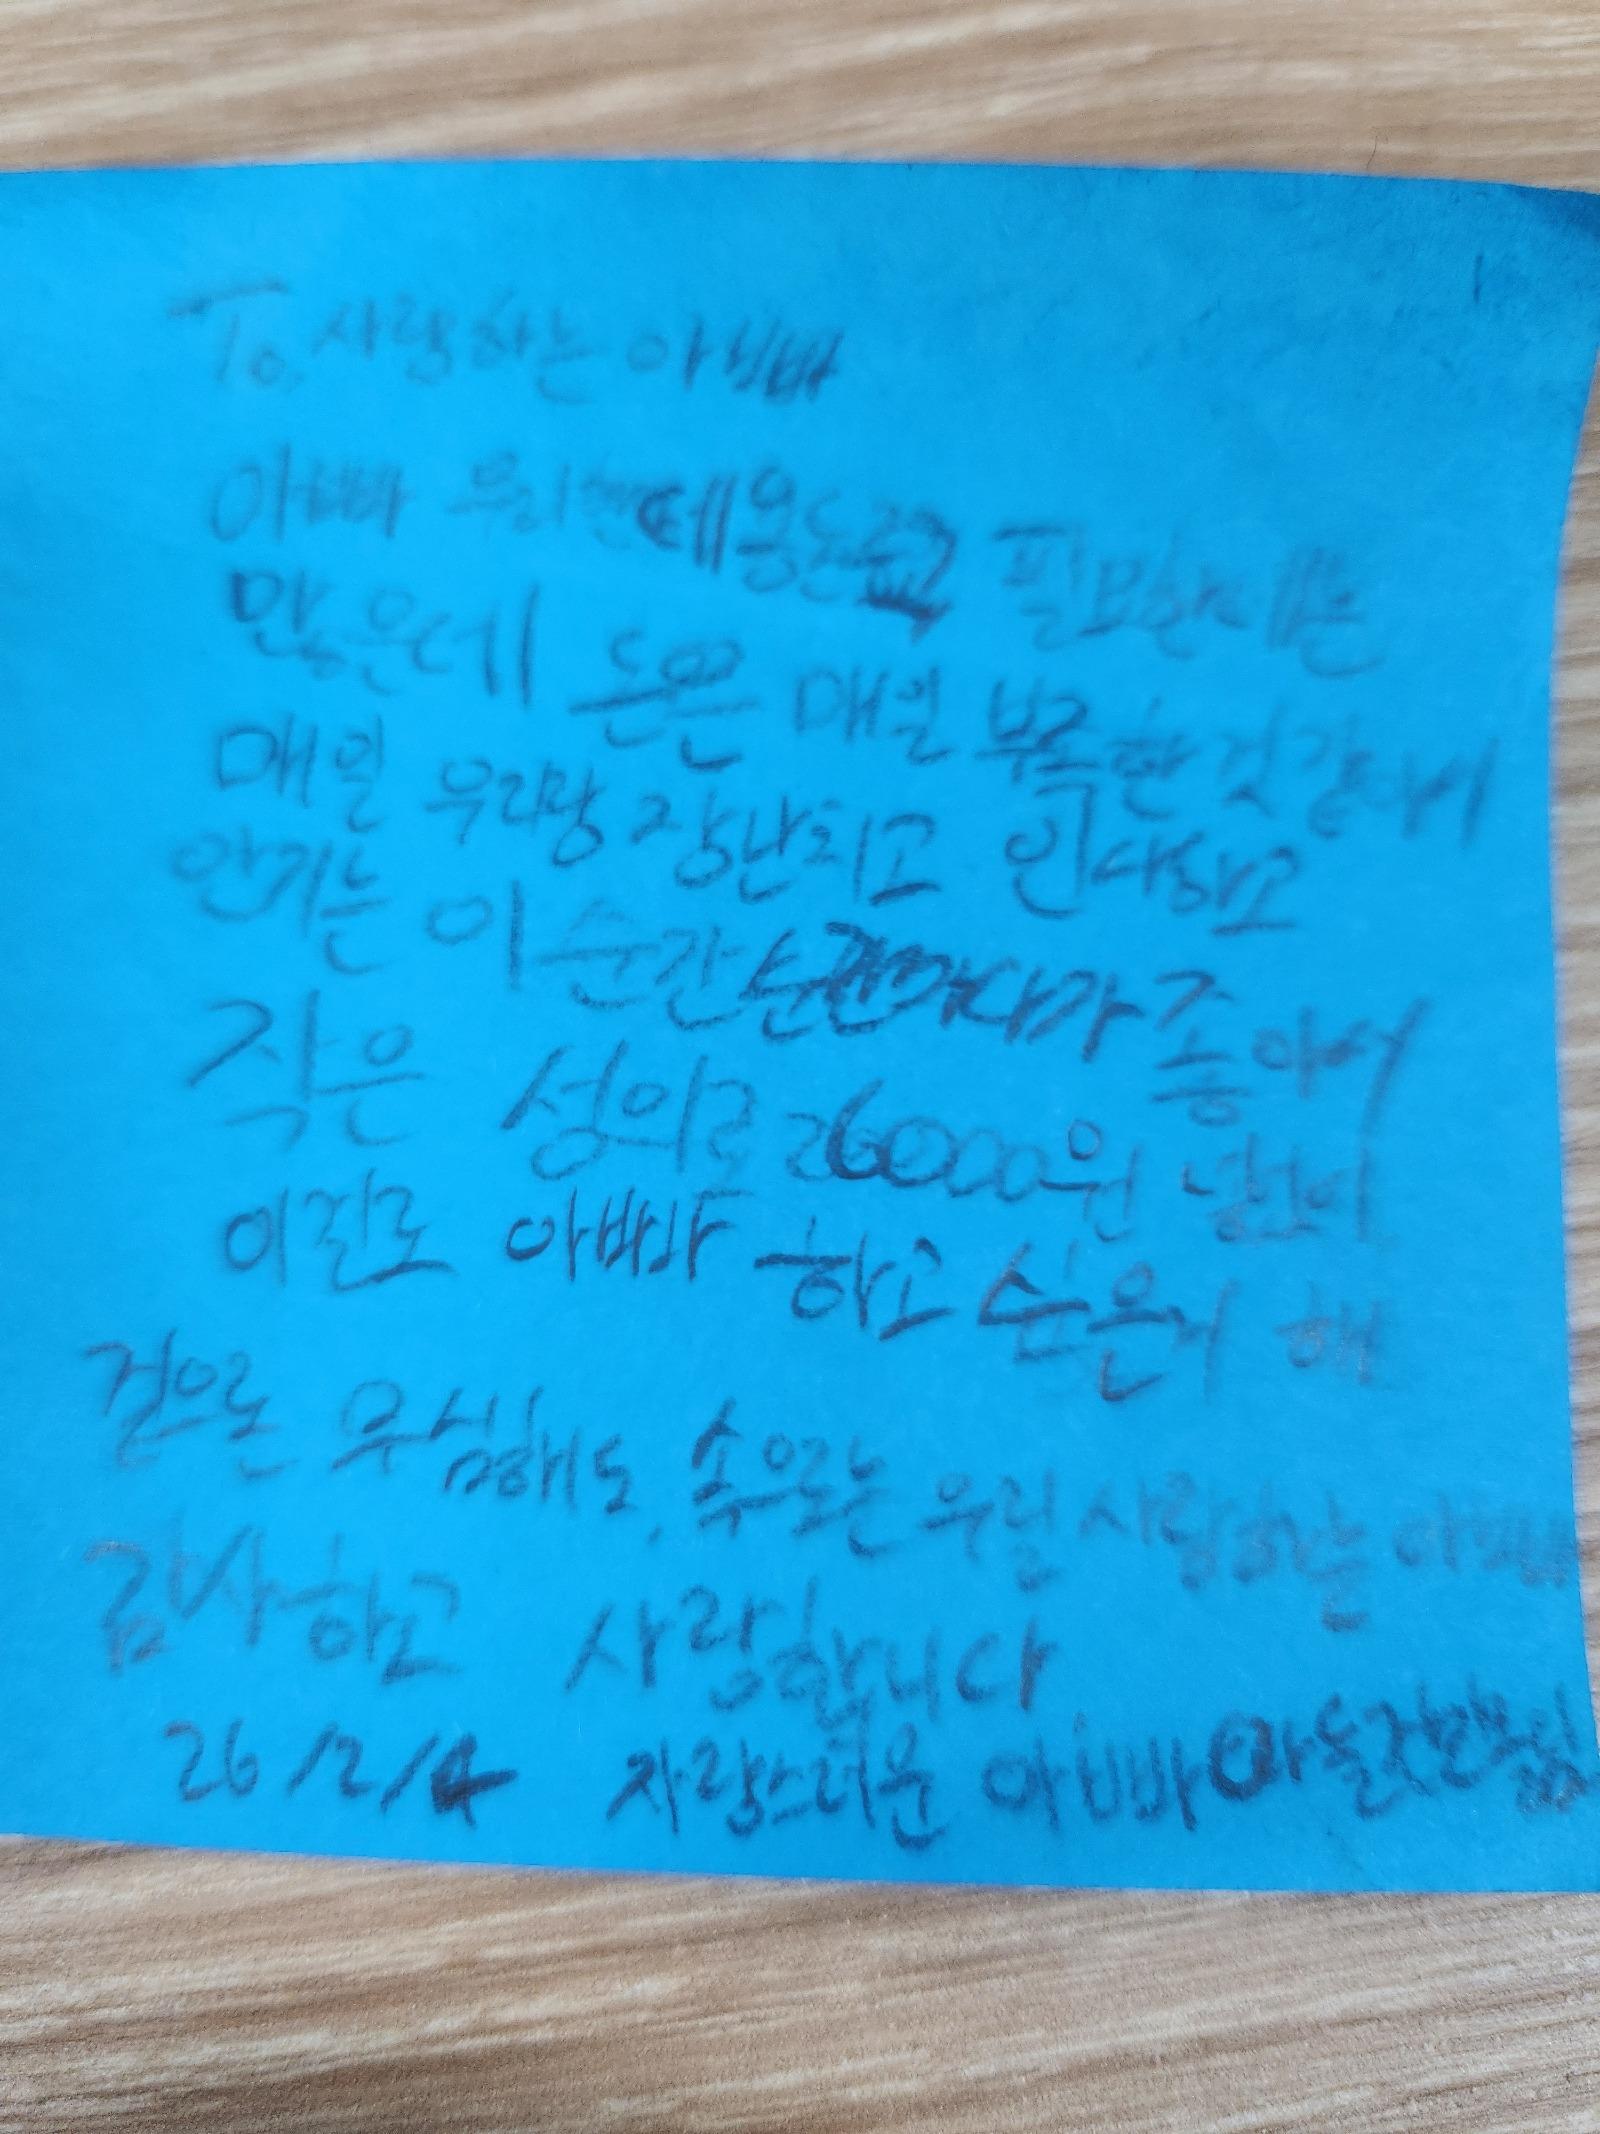 To. 사랑하는 아빠
아빠 우리한테 용돈주고 필요한데는
많은데 돈은 매일 부족한것같아서
매일 우리랑 장난치고 인사하고
안기는 이 순간 순간마다가 좋아서
작은 성의로 26000원 넣었어
이걸로 아빠가 하고 싶은거 해
겉으론 무심해도, 속으로는 우릴 사랑하는 아빠
감사하고 사랑합니다
26/2/4 자랑스러운 아빠 아들 올림